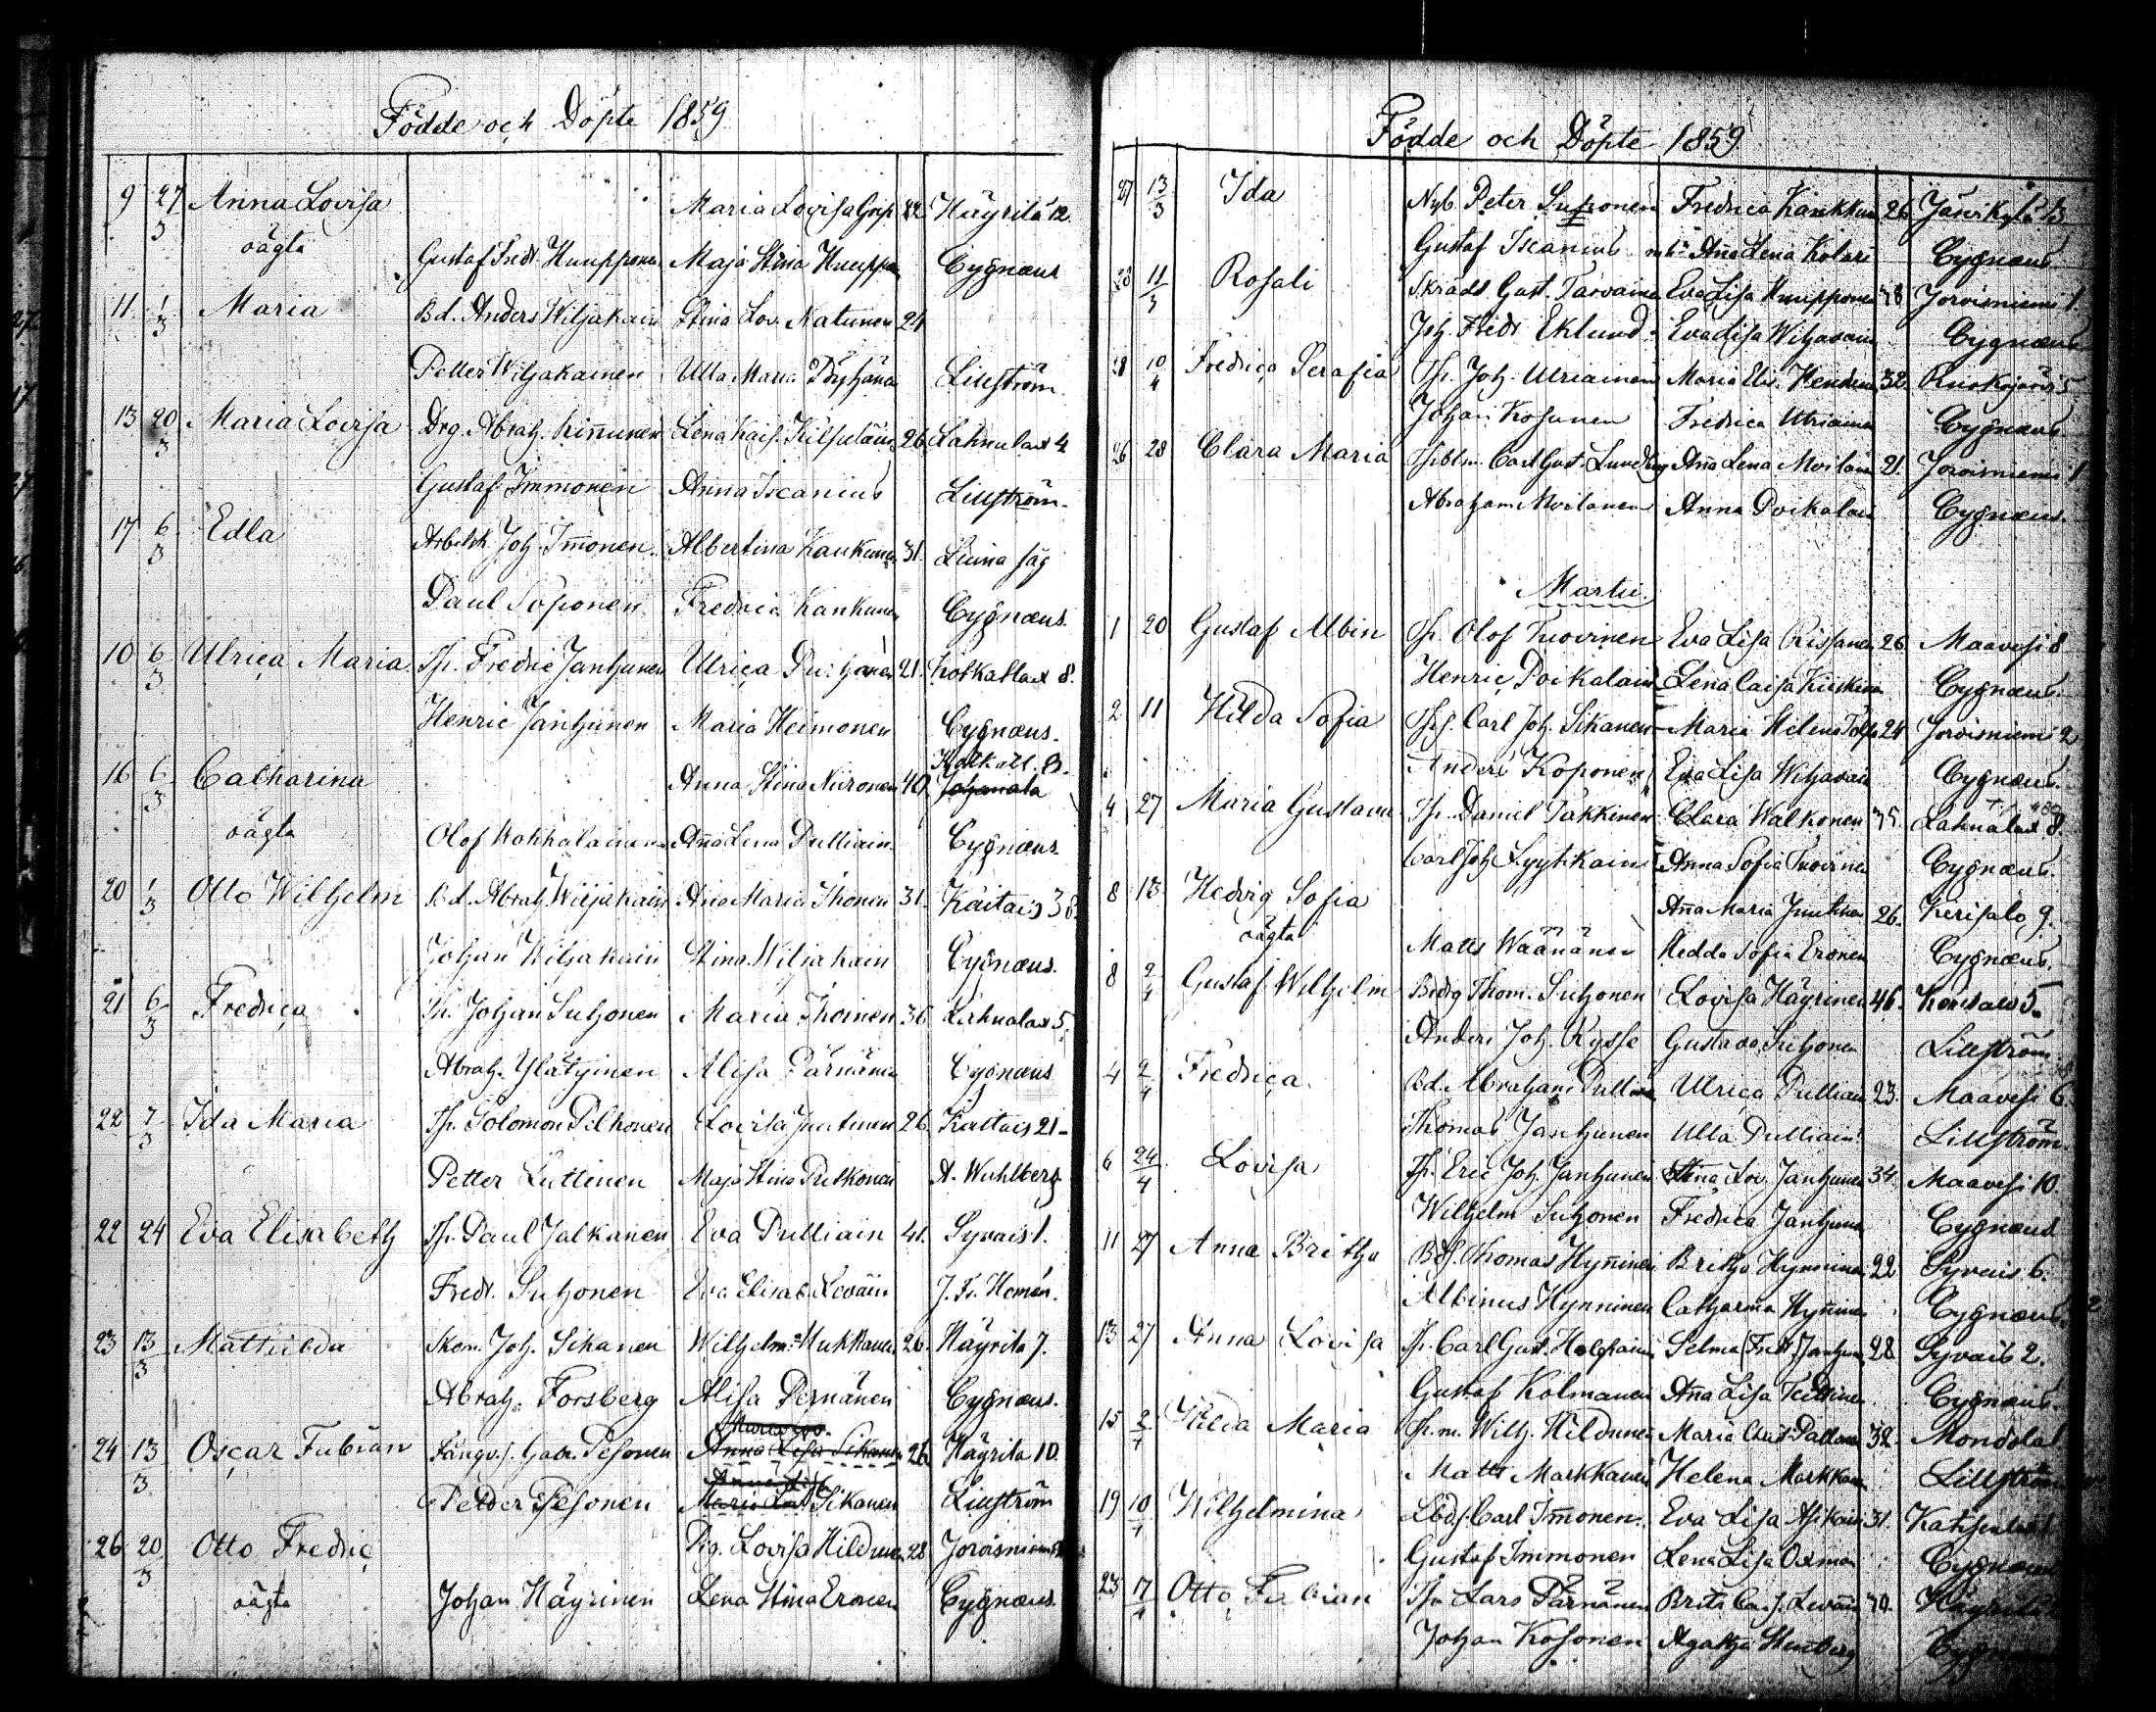 Födde och Döpte 1859
9 27/3 Anna Lovisa Maria Lovisa 22 Häyrilä 12
oägta Gustaf Fredr. Huupponen Maja Stina Huuppo Cygnæus
11 1/3 Maria Bd. Anders Wiljakain Stina Lov. Natunen 24
Petter Wiljakainen Ulla Maria Pöyhönen Lillström
13 20/3 Maria Lovisa Drg Abrah. Kinnunen Lena Kais. 26 Lahnalax 4
Gustaf Immonen Anna Iscanius Lillström.
17 6/3 Edla Arbetsk. Joh. Immonen. Albertina Kaukunen 31.
Paul Soponen Fredrica Kankunen Cygnæus.
10 6/3 Ulrica Maria Th. Fredric Janhunen Ulrica 21. Kotkatlax 8.
Henric Janhunen Maria Heimonen Cygnæus.
16 6/3 Catharina Anna Stina Niironen 40
oägta Olof Anna Lena Pulliain Cygnæus
20 1/3 Otto Wilhelm Bd. Abrah. Wiljakain Anna Maria Ihonen 31.
Johan Wiljakain Stina Wiljakain Cygnæus.
21 6/3 Fredrica Th. Johan Suhonen Maria Ihoinen 36 Lahnalax 5.
Abrah. Ylätyinen Alisa Pärnänen Cygnæus
22 7/3 Ida Maria Th. Solomon Pelkonen Lovisa Juutinen 26.
Petter Luttinen Maja Stina Putkonen A. Wahlberg
22 24 Eva Elisabeth Th. Paul Jalkanen Eva Pulliain 41. Syvais 1.
Fredr. Suhonen Eva Elisab. Leväin J. Fr. Homén.
23 13/3 Mathilda Skom. Joh. Sikanen Wilhelm. Mukkanen 26. Häyrilä 7.
Abrah. Forsberg Alisa Pernänen Cygnæus.
24 13/3 Oscar Fabian Gabr. Pesonen Anna Lisa Sikanen 26 Häyrilä 10.
Petter Pesonen Maria Lov. Sikanen Lillström
26 20/3 Otto Fredric Pig. Lovisa Hildunen 28 Joroisniemi
oägta Johan Häyrinen Lena Stina Eronen Cygnæus.
Födde och Döpte 1859
27 13/3 Ida Nyb. Peter Fredrica Kaukkunen 26 Järvikylä 13
Gustaf Iscanius Anna Lena Kolari Cygnæus.
28 11/3 Rosali Skrädd. Gust. Tarvainen Eva Lisa Huupponen 38 Joroisniemi 1.
Joh. Fredr Eklund. Eva Lisa Wiljavain Cygnæus
28 10/4 Fredrica Serafia Th. Joh. Ulriainen Maria Elis. 32. Ruokojärvi 5
Johan Kosunen Fredrica Ulriainen Cygnæus.
26 28 Clara Maria Carl Gust. Lundberg Anna Lena Moilain 21. Joroisniemi 1
Abraham Moilanen Anna Poikolain Cygnæus.
Martii.
1 20 Gustaf Albin Th. Olof Tuovinen Eva Lisa Rissanen 26. Maavesi 8
Henric Poikalain Lena Caisa Kiiskinen Cygnæus.
2 11 Hilda Sofia Carl Joh. Sikanen Maria Helena 24 Joroisniemi 2
Anders Koponen Eva Lisa Wiljavain Cygnæus.
4 27 Maria Gustava Th. Daniel Takkinen Clara Walkonen 35. Lahnalax 8.
Carl Joh Lyytikain Anna Sofia Tuovinen Cygnæus.
8 13 Hedvig Sofia Anna Maria Juutinen 26. Kerisalo 9.
oägta Matts Wäänänen Hedda Sofia Eronen Cygnæus.
8 2/4 Gustaf Wilhelm Thom. Suhonen Lovisa Häyrinen 46. Kerisalo 5.
Anders Joh. Rysse Gustava Suhonen Lillström.
4 2/4 Fredrica. Bd. Abraham Pulliain Ulrica Pulliain 23. Maavesi 6.
Thomas Janhunen Ulla Pulliain Lillström.
6 24/4 Lovisa Th. Eric Joh. Janhunen Stina Lov. Janhunen 34. Maavesi 10.
Wilhelm Suhonen Fredrica Janhunen Cygnæus
11 27 Anna Britha BdS. Thomas Hynninen Britha Hynninen 22 Syvais 6.
Albinus Hynninen Catharina Hynninen Cygnæus.
13 27 Anna Lovisa Th. Carl Gust. Holopain Selma (Fredr.) Janhunen 28 Syvais 2.
Gustaf Kolmanen Anna Lisa Teittinen Cygnæus.
15 2/4 Hilda Maria Th. m. Wilh. Hildunen Maria Christ. 32. Mondola 1
Matts Markkanen Helena Markkanen Lillström
19 10/4 Wilhelmina Lbds. Carl Immonen. Eva Lisa Asikain 31.
Gustaf Immonen Lena Lisa Oxman Cygnæus
23 17/4 Otto Fabian Th. Lars Pärnänen Brita Cais. Levain 40. Häyrilä
Johan Kosonen Agatha Cygnæus